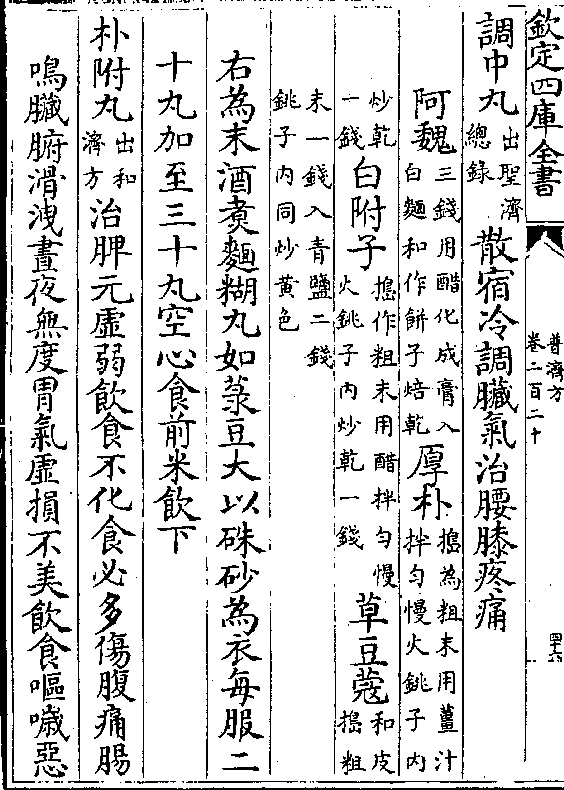 欽定四庫全書
普濟方
卷二百二十
四十六
調中丸出聖濟總錄散宿冷調臟氣治腰膝疼痛
阿魏三錢用醋化成膏入白麵和作餅子焙乾厚朴搗為粗末用薑汁拌勻慢火銚子內
炒乾一錢白附子搗作粗末用醋拌勻慢火銚子內炒乾一錢草豆蔻和皮搗粗
末一錢入青鹽二錢銚子內同炒黄色
右為末酒煮麵糊丸如菉豆大以硃砂為衣每服二
十丸加至三十丸空心食前米飲下
朴附丸出和濟方治脾元虛弱飲食不化食必多傷腹痛腸
鳴臟腑滑洩晝夜無度胃氣虛損不美飲食嘔噦惡